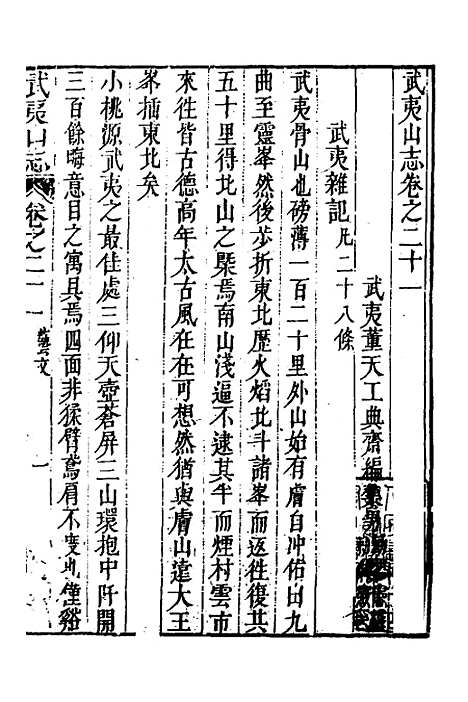 武夷山志卷之二十一
武夷董天工典齋編
武夷雜記凡二十八條
武夷骨山也磅薄一百二十里外山始有膚自冲佑由九
曲至靈峯然後步折東北歷火焰北斗諸峯而返徃復其
五十里得北山之槩焉南山淺逼不逮其半而煙村雲市
來徃皆古德高年太古風在在可想然猶與膚山遠大王
峯插東北矣
小桃源武夷之最佳處三仰天壺蒼屏三山環抱中阡開
三百餘畮意目之寓具焉四面非猱臂鳶肩不度也僅谿
武夷山志
卷之二十一
藝文
一